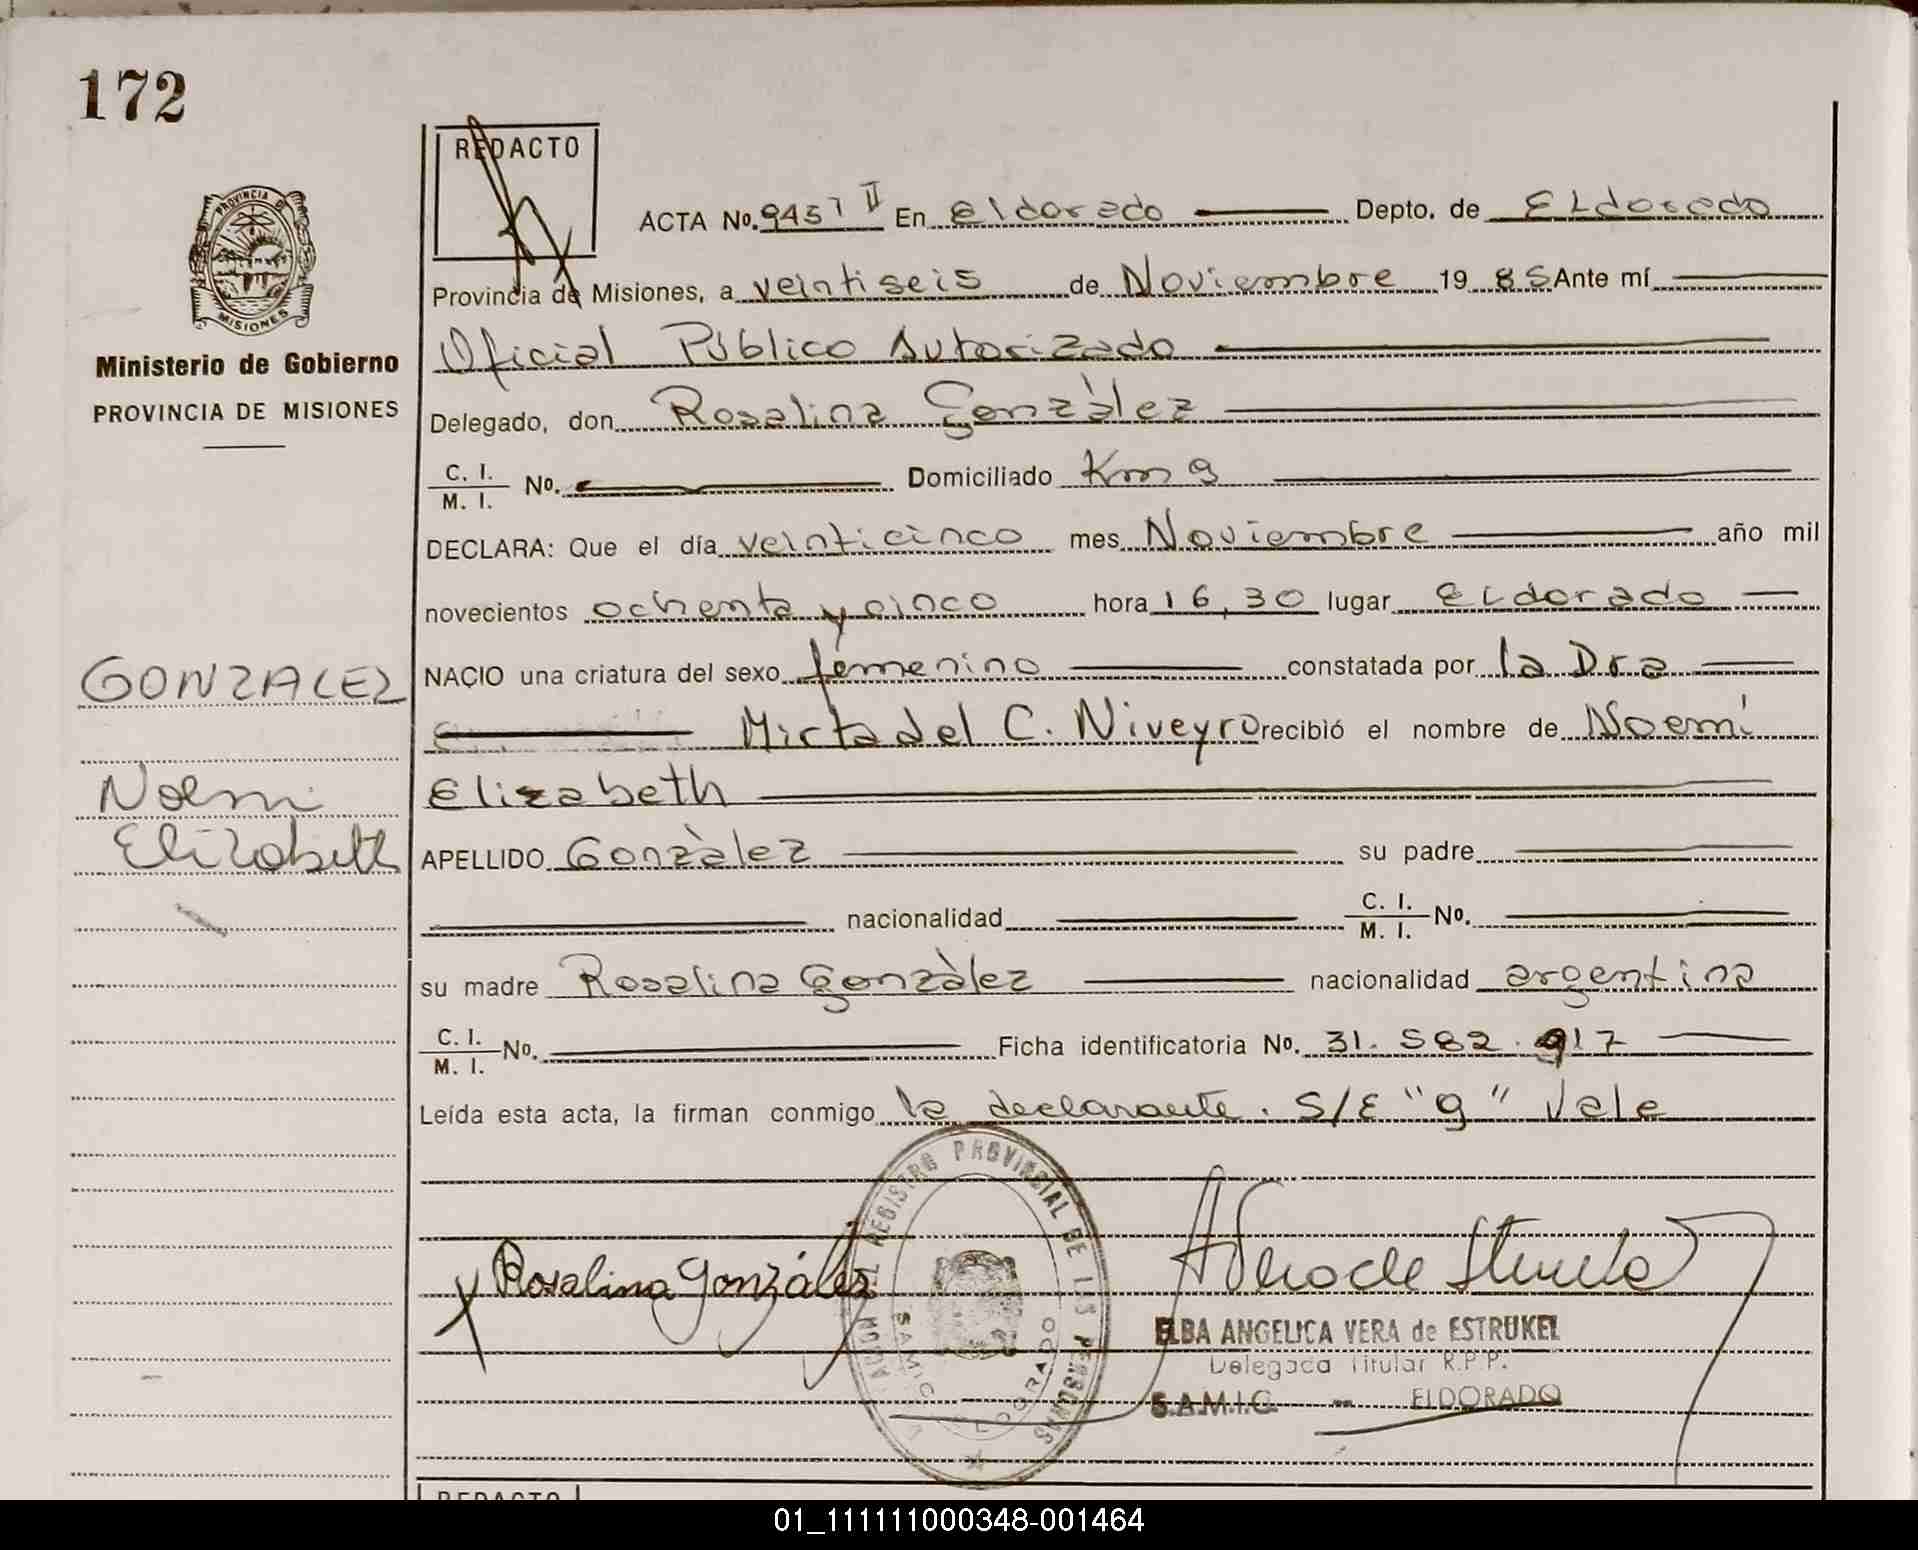 172
REDACTO
PROVINCIA DE MISIONES
Ministerio de Gobierno
PROVINCIA DE MISIONES
ACTA No. 9457 II En Eldorado Depto. de ELdorado
Provincia de Misiones, a veintiseis de Noviembre 1985 Ante mí
Oficial Público Autorizado
Delegado, don Rosalina Gonzàlez
C. I. / M. I. No. Domiciliado Km 9
DECLARA: Que el día veinticinco mes Noviembre año mil
novecientos ochenta y cinco hora 16,30 lugar ELdorado
GONZALEZ
NACIO una criatura del sexo femenino constatada por la Dra
Mirta del C. Niveyro recibió el nombre de Noemí
Noemi
Elizabeth
Elizabeth
APELLIDO Gonzàlez su padre
nacionalidad C. I. / M. I. No.
su madre Rosalina Gonzàlez nacionalidad argentina
C. I. / M. I. No. Ficha identificatoria No. 31.582.917
Leída esta acta, la firman conmigo la declarante. S/E "9" Vale
Rosalina González
REGISTRO PROVINCIAL DE LAS PERSONAS
SAMIC ELDORADO
ELBA ANGELICA VERA de ESTRUKEL
Delegada Titular R.P.P.
S.A.M.I.C. - ELDORADO
REDACTO
01_111111000348-001464